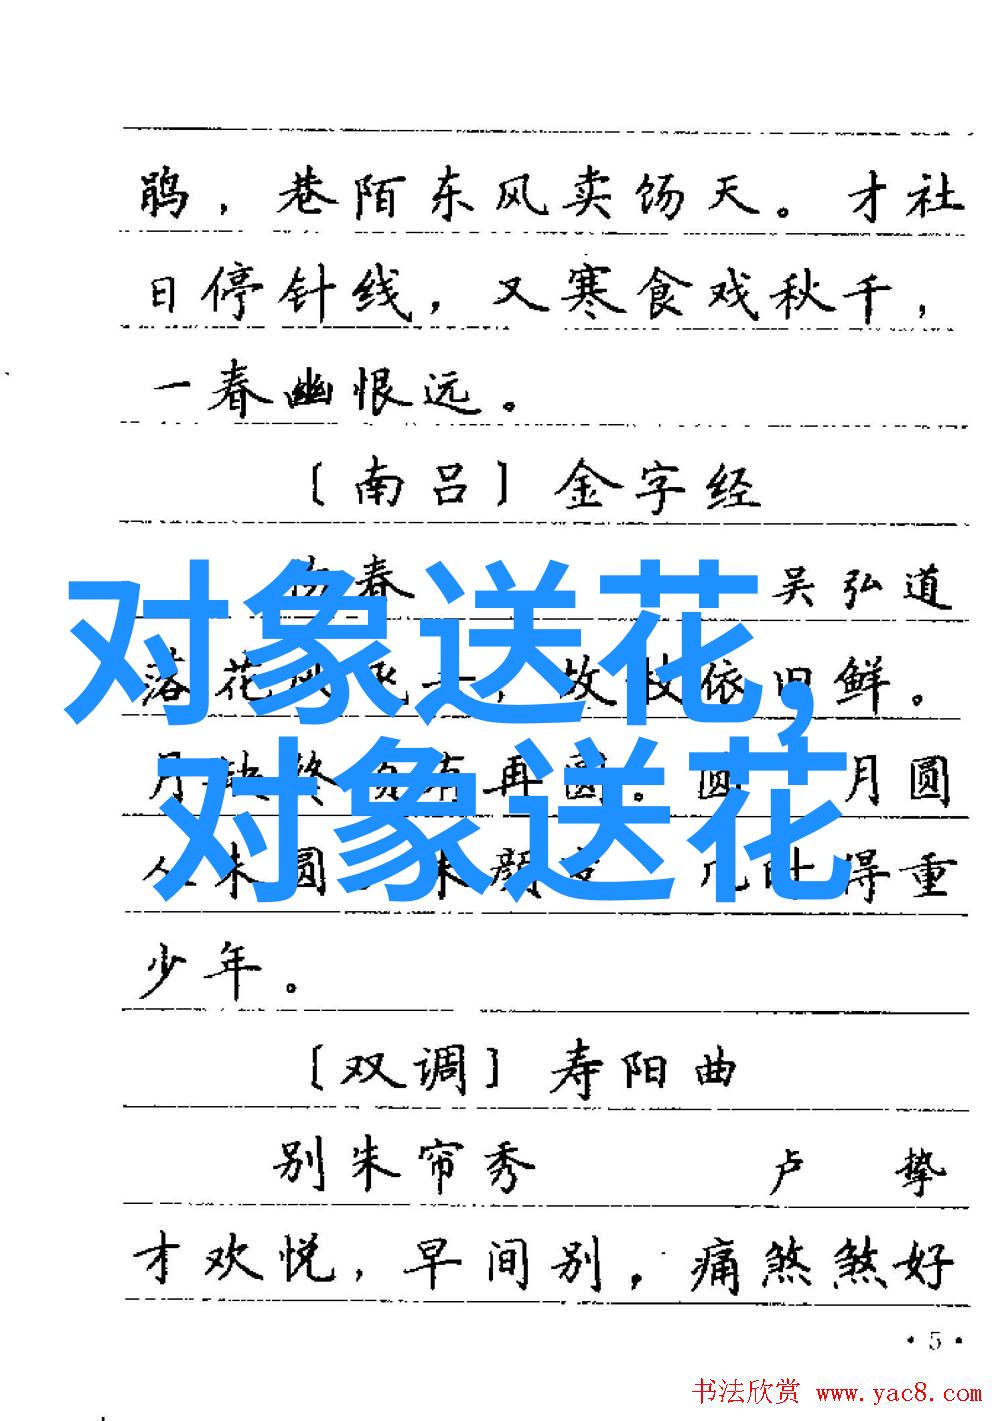 鹃，巷陌东风卖饧天。才社
日停针线，又寒食戏秋千，
一春幽恨远。
〔南吕〕金字经
春 吴弘道
落花 依旧鲜。
月 再圆。圆 月圆
圆 得重
少年。
〔双调〕寿阳曲
别朱帘秀 卢挚
才欢悦，早间别，痛煞煞好
对象送花，
对象送花
·5·
书法欣赏 www.yac8.com